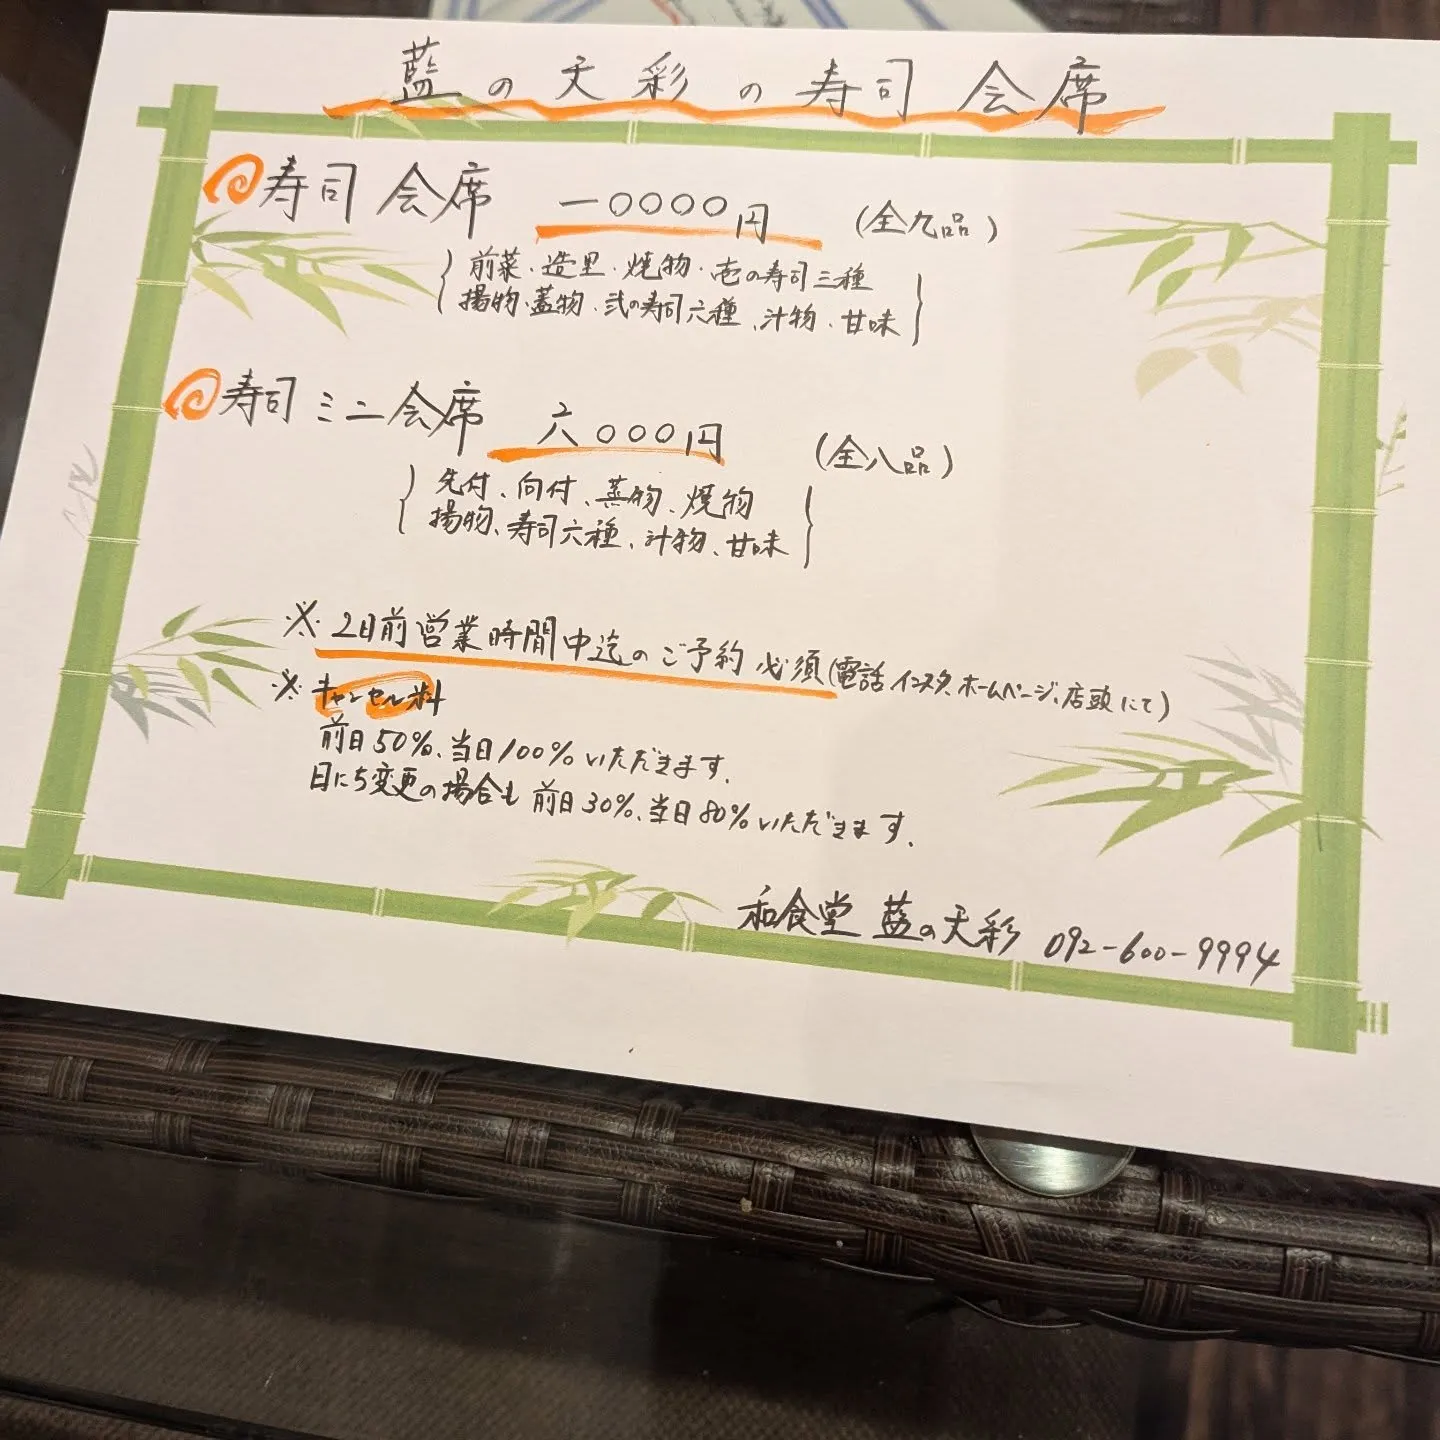 藍の天彩の寿司会席
寿司会席 一〇〇〇〇円 (全九品)
前菜・造里・焼物・壱の寿司三種
揚物・蓋物・弐の寿司六種、汁物・甘味
寿司ミニ会席 六〇〇〇円 (全八品)
先付、向付、蒸物、焼物
揚物、寿司六種、汁物、甘味
※2日前営業時間中迄のご予約必須(電話、インスタ、ホームページ、店頭にて)
※キャンセル料
前日50%、当日100%いただきます。
日にち変更の場合も前日30%、当日80%いただきます。
和食堂 藍の天彩 092-600-9994